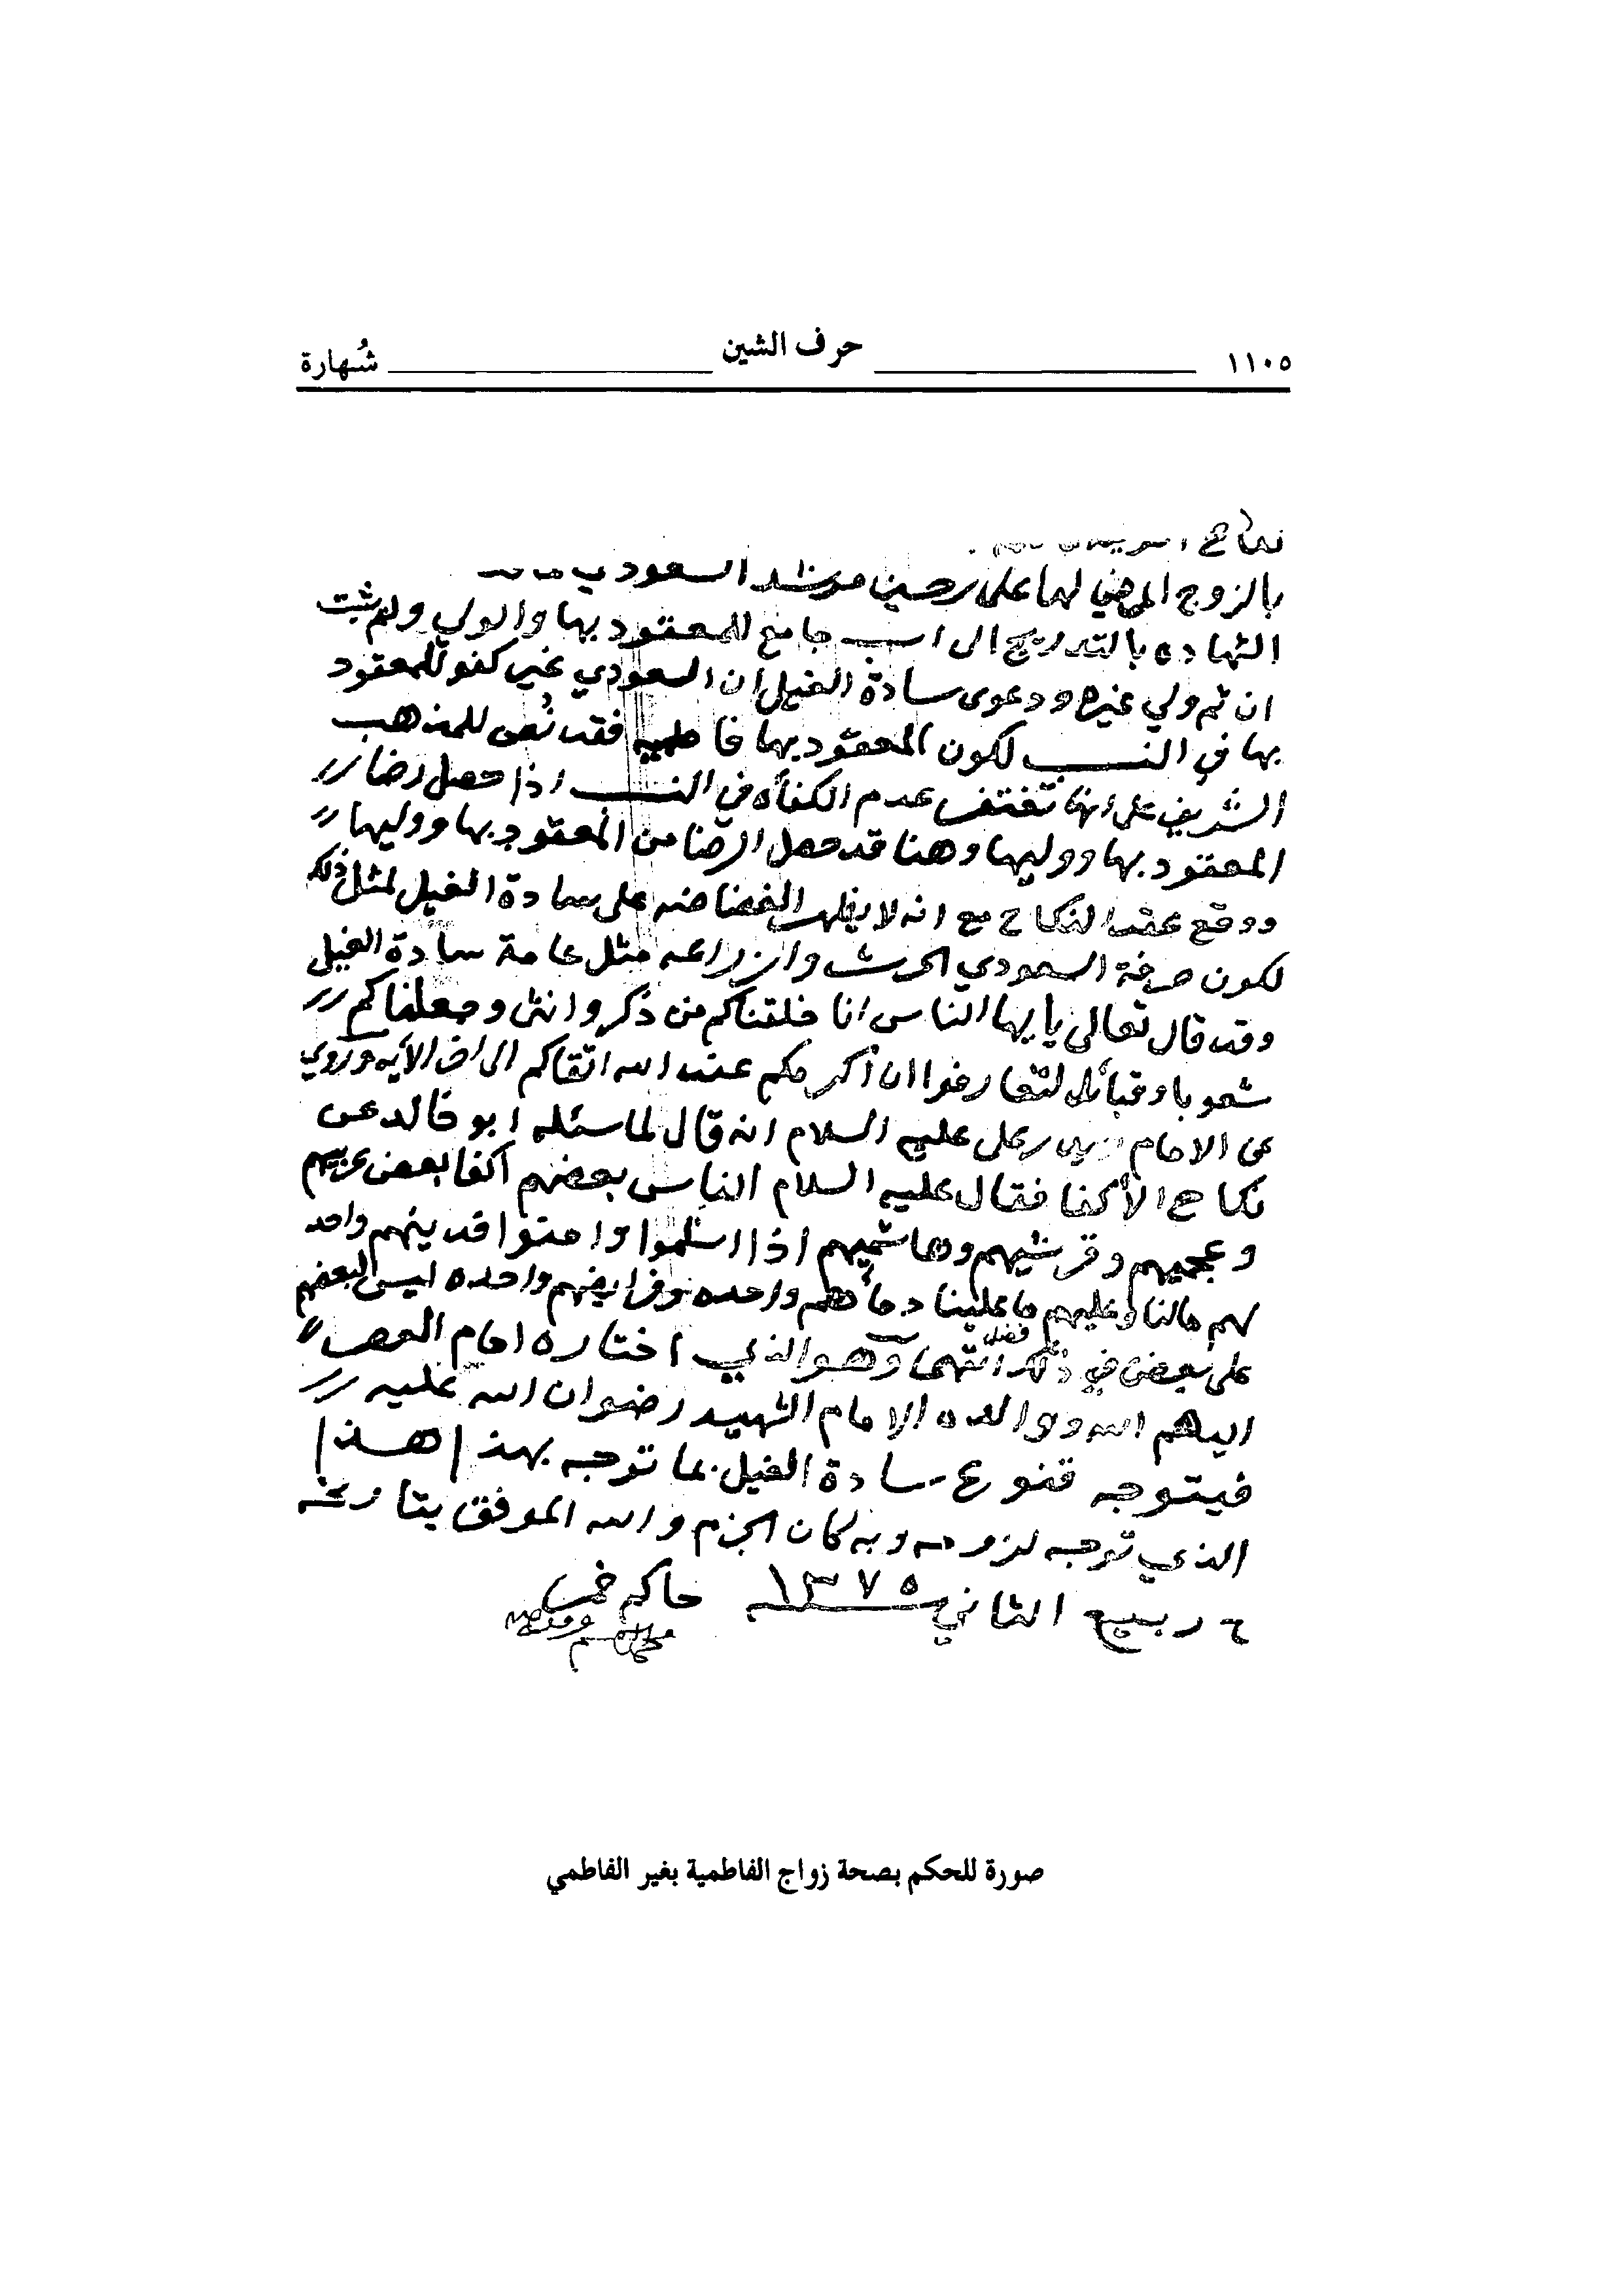 ١١٠٥ حرف الشين شُهارة
نكاح
بالزوج المرضي لها على حسين مرشد السعودي
الشهاده بالتدريج الى اب جامع للمعقود بها والولي ولم يثبت
ان ثم ولي غيره ودعوى سادة الغيل ان السعودي غير كفو للمعقود
بها في النسب لكون المعقود بها فاطميه فقد نُص للمذهب
الشريف على انها تغتفر عدم الكفأه في النسب اذا حصل رضا
المعقود بها ووليها وهنا قد حصل الرضا من المعقود بها ووليها
ووقع عقد النكاح مع انه لا يظهر الغضاضه على سادة الغيل لمثل ذلك
لكون حرفة السعودي الحرث والزراعه مثل عامة سادة الغيل
وقد قال تعالى يا يها الناس انا خلقناكم من ذكر وانثى وجعلناكم
شعوبا وقبائل لتعارفوا ان أكرمكم عند الله اتقاكم الى اخر الآيه وروي
عن الامام زيد بن على عليه السلام انه قال لما سئله ابو خالد عن
نكاح الأكفا فقال عليه السلام الناس بعضهم أكفا بعض عربيهم
وعجميهم وقرشيهم وهاشميهم اذا اسلموا وامنوا فدينهم واحد
لهم مالنا وعليهم ما علينا دمأهم واحده وفرايضهم واحده ليس لبعضهم
على بعض في ذلك فضل انتهى وهو الذي اختاره امام العصر
ايدهم الله ووالده الامام الشهيد رضوان الله عليه
فيتوجه قنوع سادة الغيل بما توجه بهذا هذا
الذي توجه لزومه وبه كان الجزم والله الموفق بتاريخه
ربيع الثاني ١٣٧٥ حاكم خمر
صورة للحكم بصحة زواج الفاطمية بغير الفاطمي